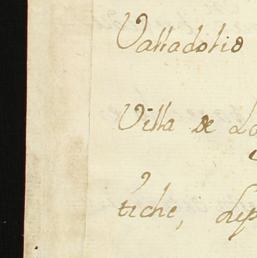 Valladolid
Villa de Lo
tiche, dip